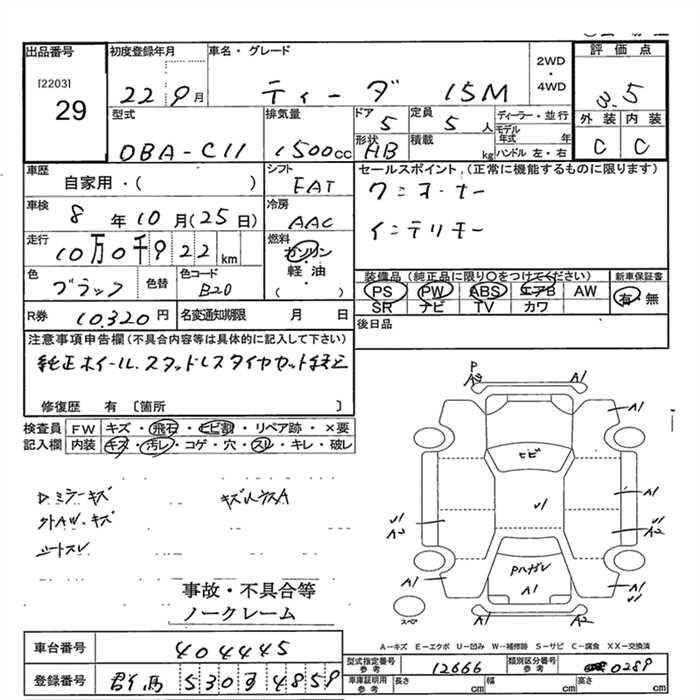 出品番号
[2203]
29
初度登録年月
22 9月
車名・グレード
ティーダ 15M
2WD
・
4WD
評価点
3.5
外装 内装
C C
型式
DBA-C11
排気量
1500cc
ドア
5
定員
5 人
形状
HB
積載
kg
ディーラー・並行
モデル年式 年
ハンドル 左・右
車歴
自家用・( )
シフト
FAT
車検
8年10月(25日)
冷房
AAC
走行
10万0千922km
燃料
ガソリン
軽油
( )
色
ブラック
色替
色コード
B20
R券
10,320円
名変通知期限 月 日
セールスポイント (正常に機能するものに限ります)
ワンオーナー
インテリキー
装備品 (純正品に限り○をつけてください)
PS PW ABS エアB AW
SR ナビ TV カワ
新車保証書
有・無
後日品
注意事項申告欄(不具合内容等は具体的に記入して下さい)
純正ホイール、スタッドレスタイヤセット積込
修復歴 有〔箇所 〕
検査員記入欄
FW キズ・飛石・ヒビ割・リペア跡・×要
内装 キズ・汚レ・コゲ・穴・スレ・キレ・破レ
ミラーキズ
外AW、キズ
シートスレ
事故・不具合等
ノークレーム
P
A1
A1
ヒビ
U1
A1
U1
A2
A1
Pハガレ
A1
U1
A1
A2
A1
A2
スペア
A-キズ E-エクボ U-凹み W-補修跡 S-サビ C-腐食 XX-交換済
車台番号
404445
登録番号
群馬 530す4859
型式指定番号
参考
12666
類別区分番号
参考
0289
車庫証明用
参考
長さ cm 幅 cm 高さ cm